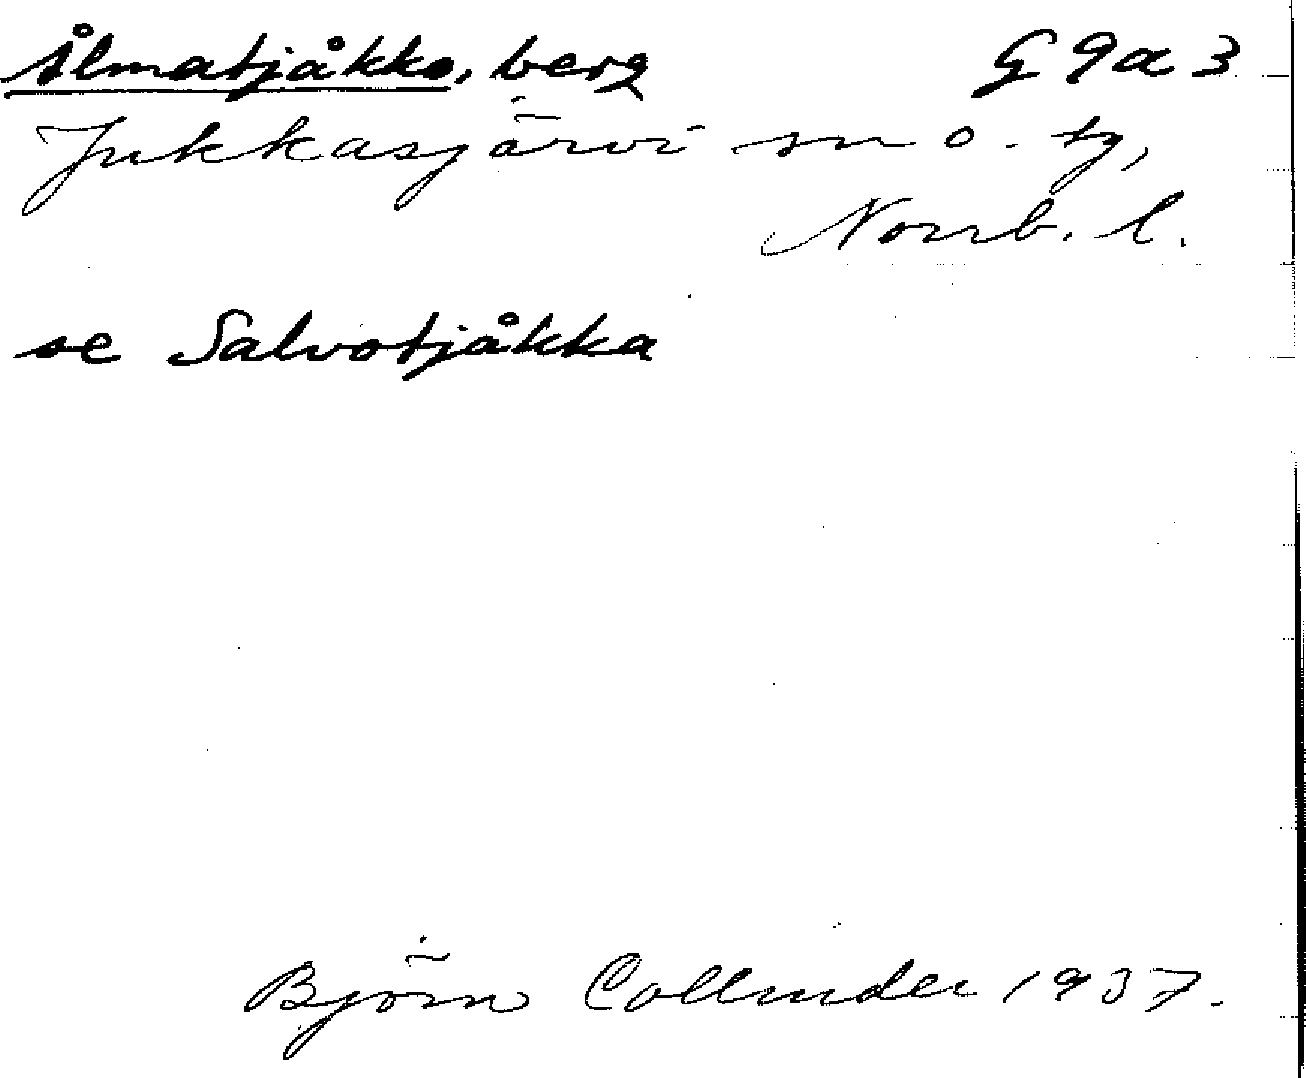 Ålmatjåkko, berg G9a3
Jukkasjärvi sn o. tg,
Norrb. l.
se Salvotjåkka
Björn Collinder 1937.